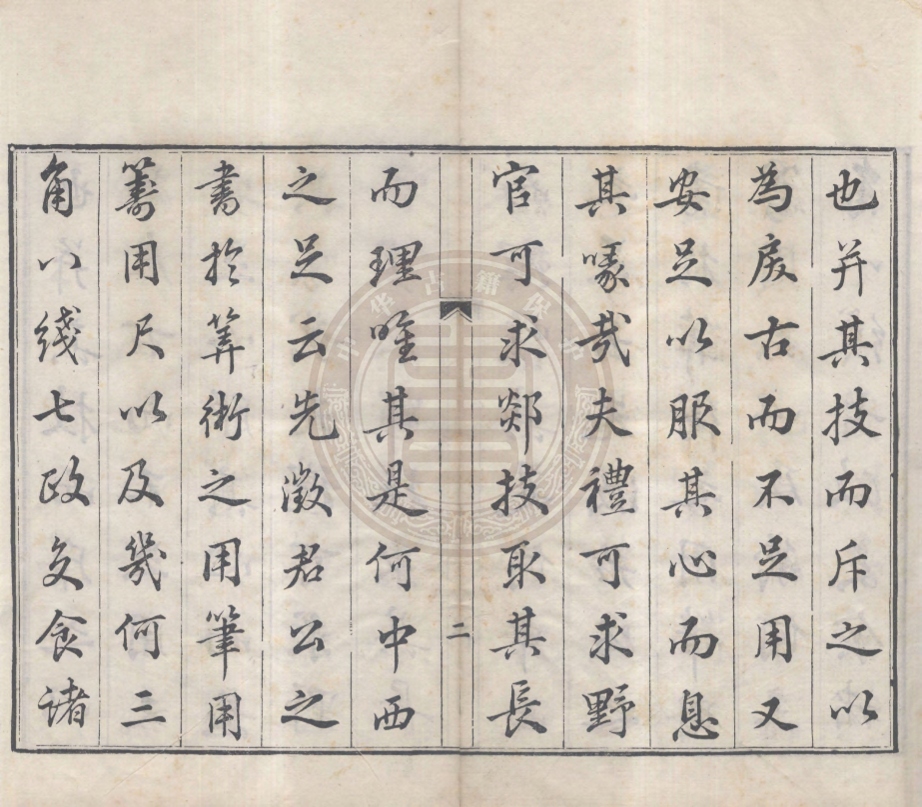 也并其技而斥之以
為戾古而不足用又
安足以服其心而息
其喙哉夫禮可求野
官可求郯技取其長
二
而理唯其是何中西
之足云先徵君公之
書於筭術之用筆用
籌用尺以及幾何三
角八綫七政交食諸
中华古籍保护